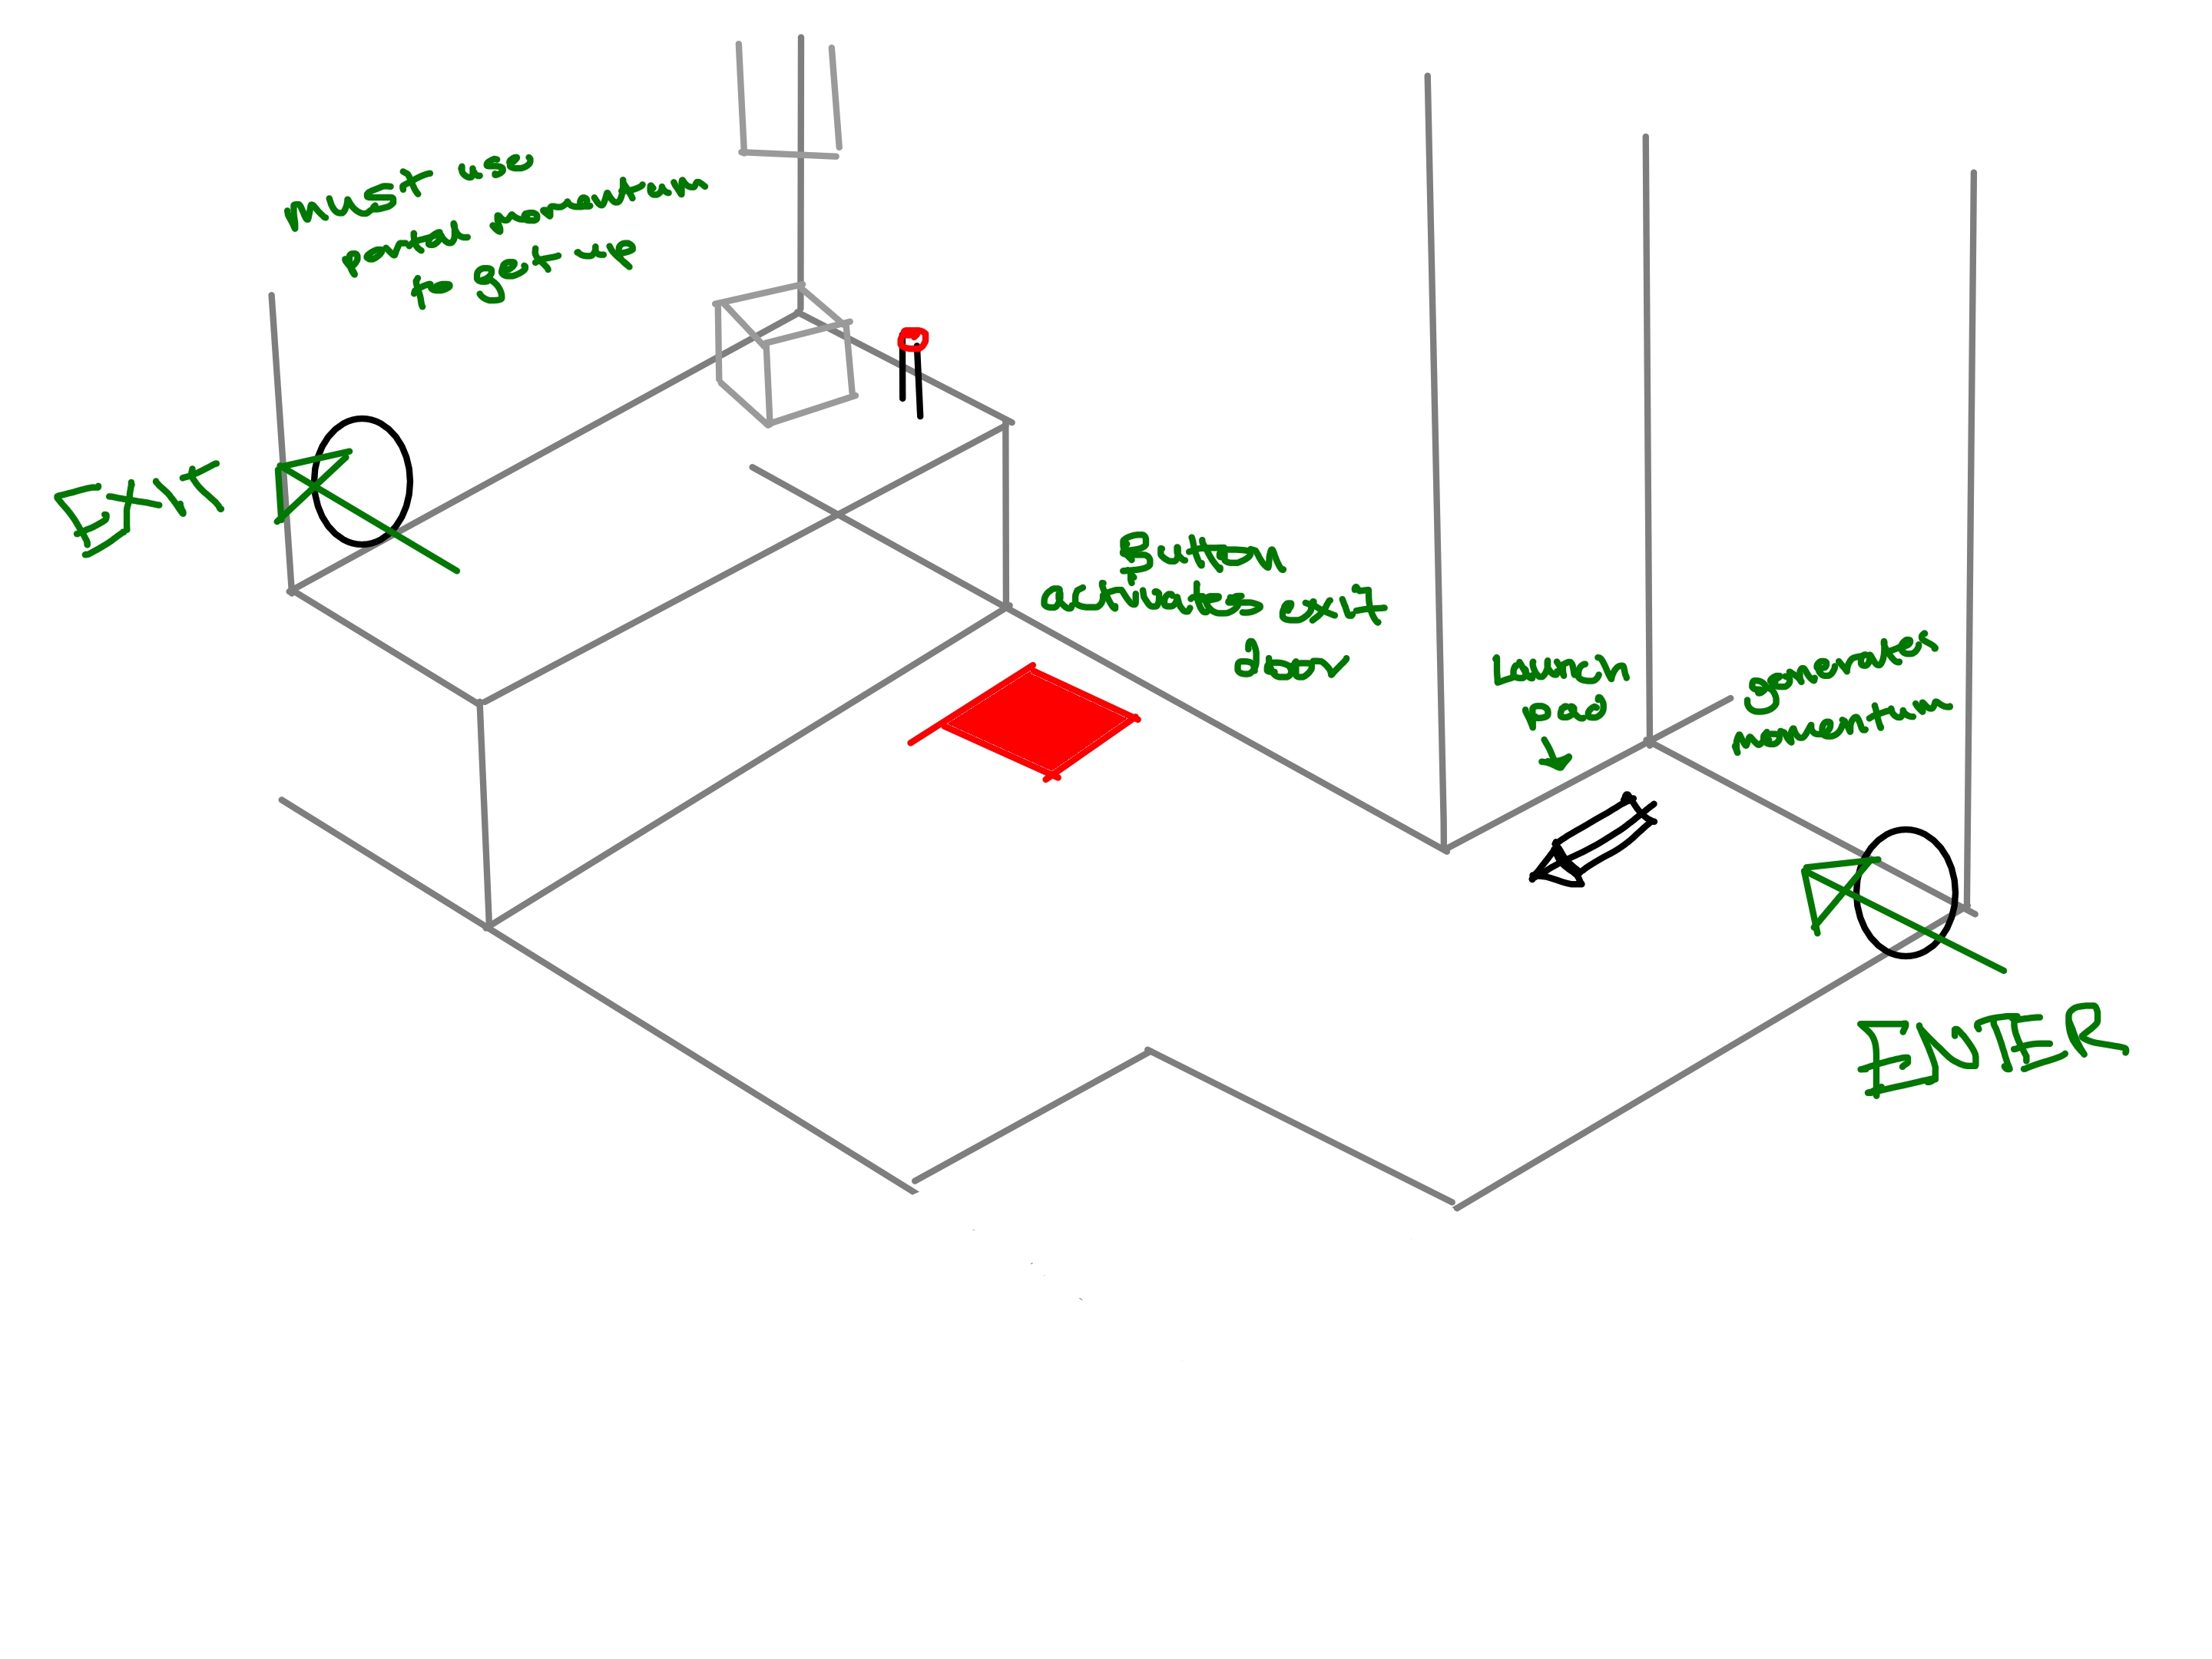 Must use
portal momentum
to get up
EXIT
Button
activates exit
door
Launch
pad
generates
momentum
ENTER